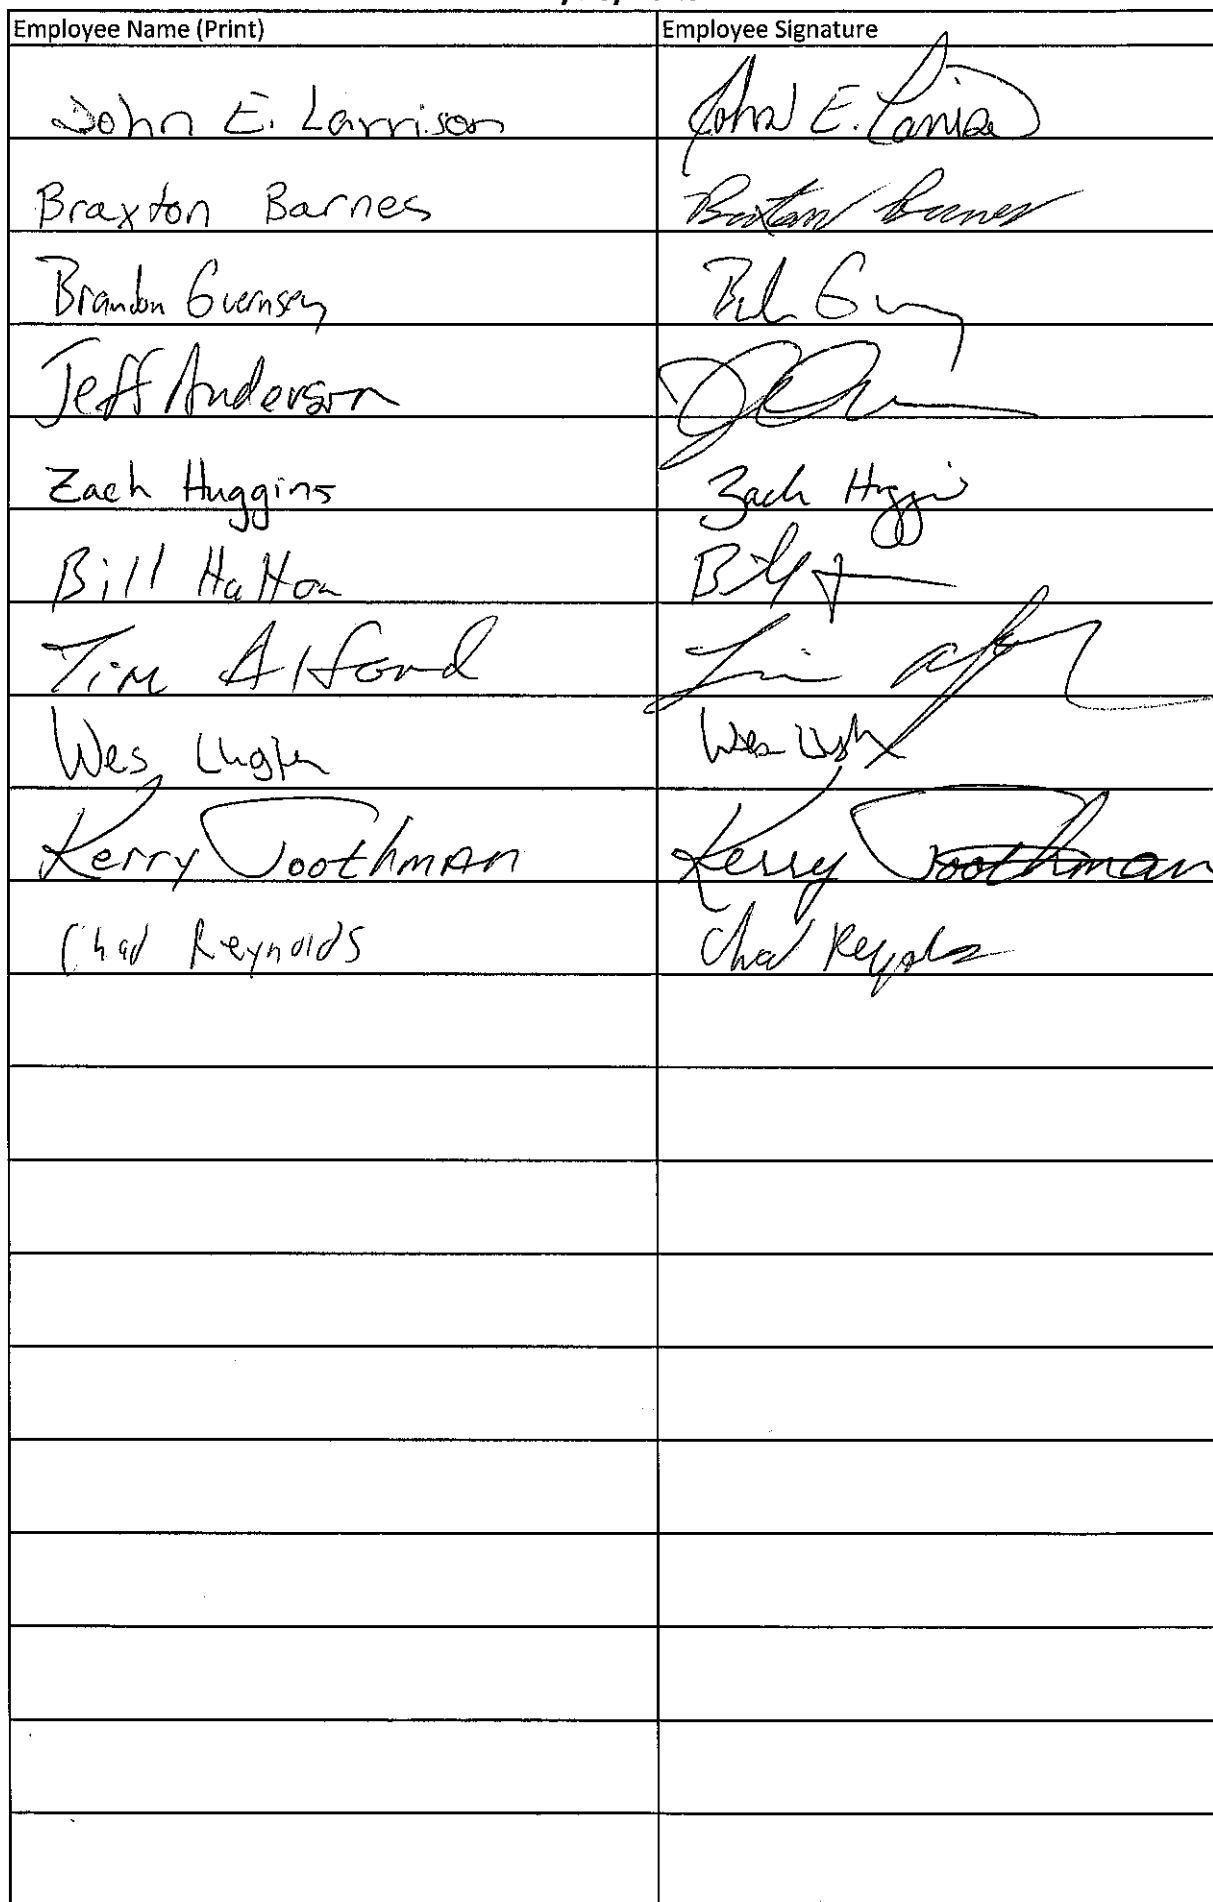 Employee Name (Print) Employee Signature
John E. Larrison John E. Larrison
Braxton Barnes Braxton Barnes
Brandon Guernsey
Jeff Anderson
Zach Huggins Zach Huggins
Bill Hatton Bill
Tim Alford Tim
Wes Wes
Kerry Toothman Kerry Toothman
Chad Reynolds Chad Reynolds